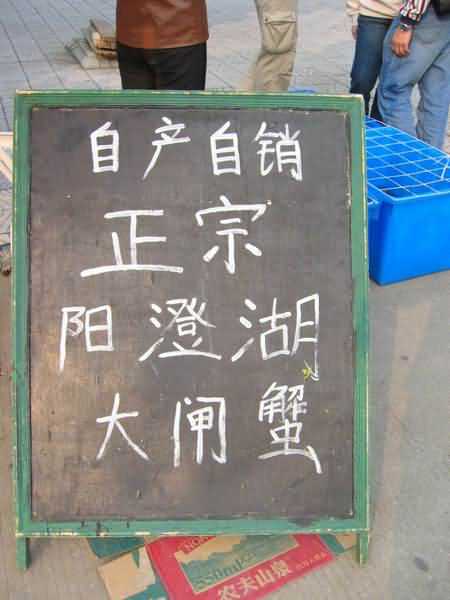 自产自销
正宗
阳澄湖
大闸蟹
550ml
农夫山泉